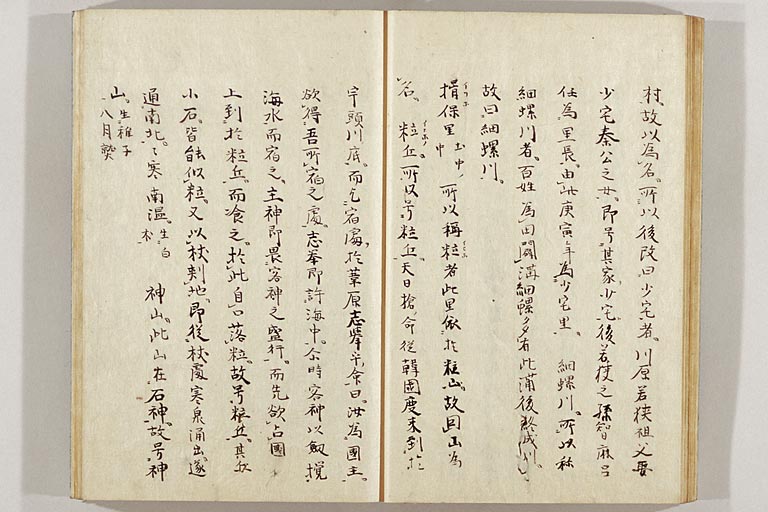 村故以為名所以後改曰少宅者川原若狭祖父娶
少宅秦公之女即号其家少宅後若狭之孫智麻呂
任為里長由此庚寅年為少宅里 細螺川所以称
細螺川者百姓為田闢溝細螺多有此溝後終成川
故曰細螺川
揖保里土中中所以稱粒者此里依於粒山故因山為
名 粒丘所以号粒丘天日槍命従韓國度来到於
宇頭川底而乞宿處於葦原志挙乎命曰汝為國主
欲得吾所宿之處志挙即許海中尒時客神以剱撹
海水而宿之主神即畏客神之盛行而先欲占國
上到於粒丘而飡之於此自口落粒故号粒丘其丘
小石皆能似粒又以杖刺地即従杖處寒泉涌出遂
通南北々寒南温生白朮 神山此山在石神故号神
山生椎子八月熟